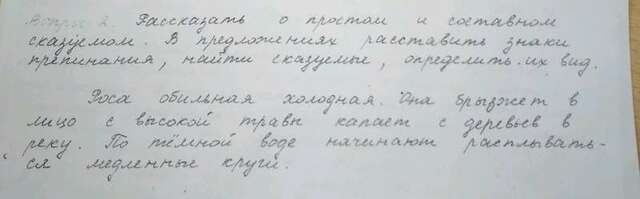 Вопрос 2. Рассказать о простом и составном
сказуемом. В предложениях расставить знаки
препинания, найти сказуемые, определить их вид.
Роса обильная холодная. Она брызжет в
лицо с высокой травы капает с деревьев в
реку. По тёмной воде начинают расплывать-
ся медленные круги.